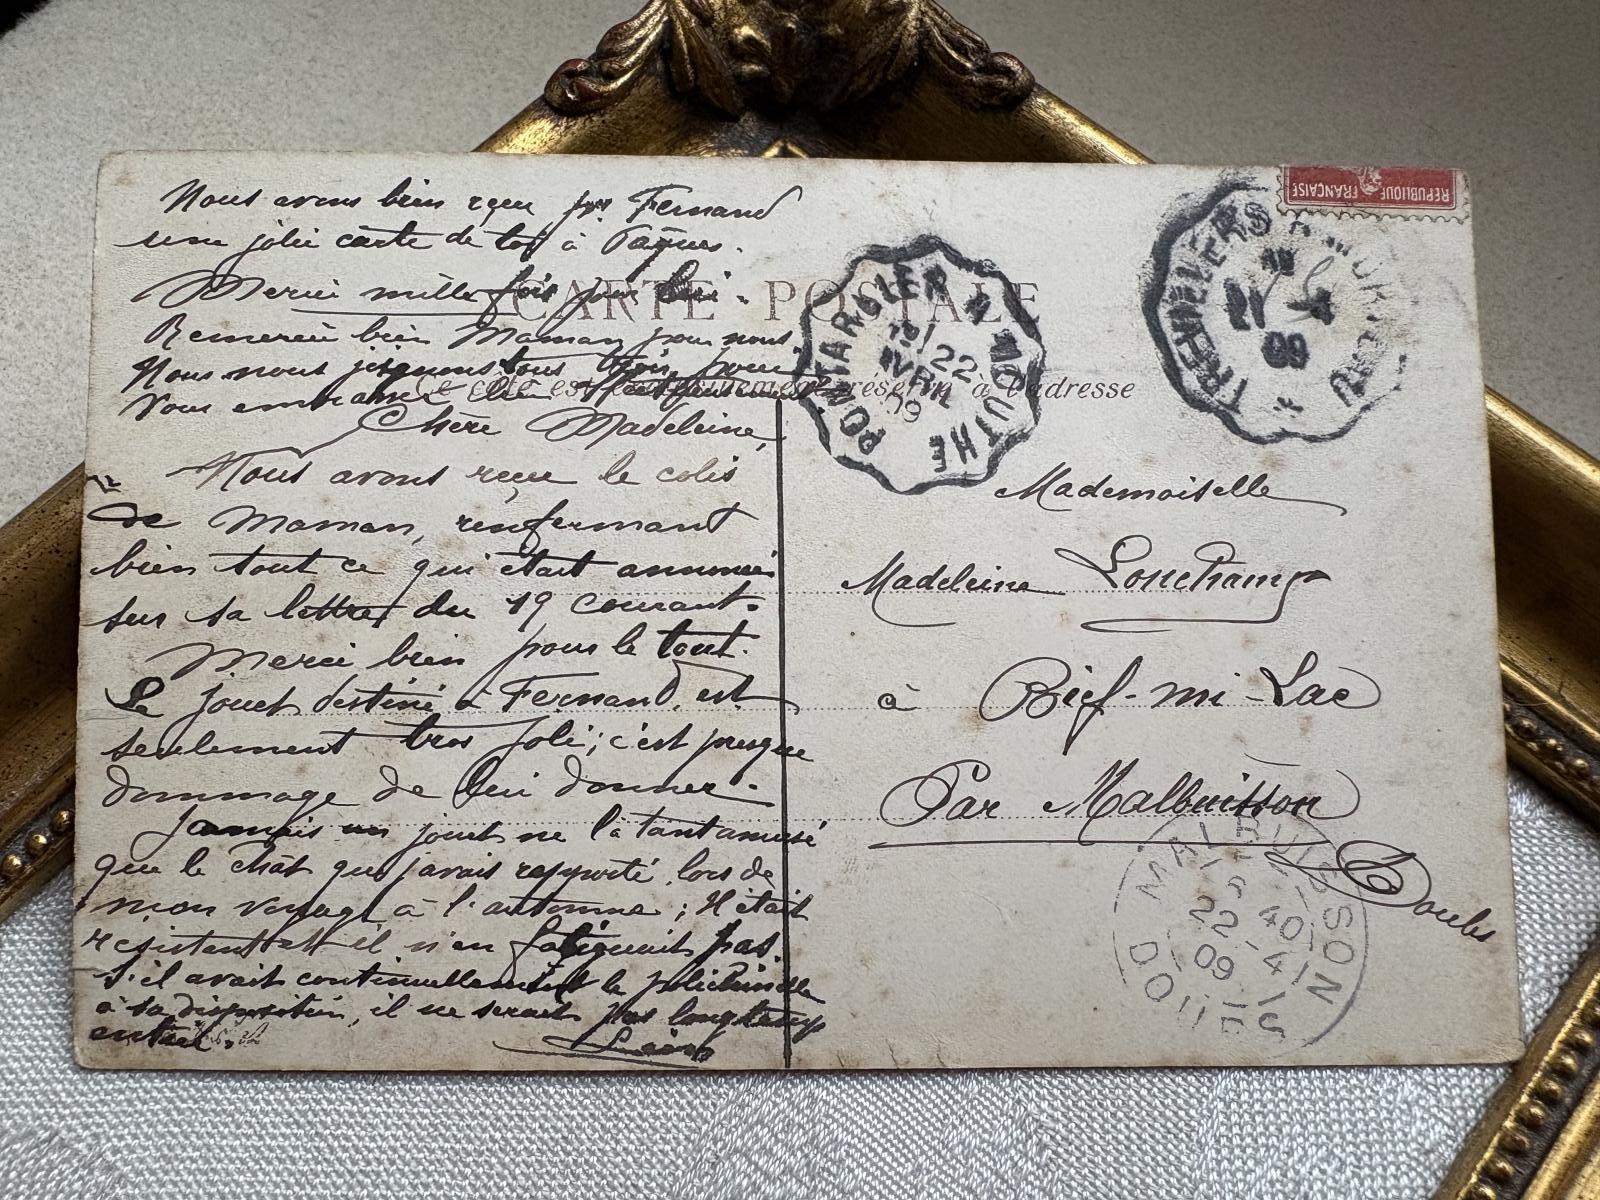 Nous avons bien reçu pr Fernand
une jolie carte de toi à Pâques.
Merci mille fois pour lui.
Remercie bien Maman pour nous
Nous nous joignons tous trois pour
vous embrasser bien
Chère Madeleine,
Nous avons reçu le colis
de Maman, renfermant
bien tout ce qui était annoncé
sur sa lettre du 19 courant.
Merci bien pour le tout.
Le jouet destiné à Fernand, est
seulement trop joli; c'est presque
dommage de lui donner.
Jamais un jouet ne l'a tant amusé
que le chat que j'avais rapporté, lors de
mon voyage à l'automne; Il était
résistant et il n'en fatiguait pas.
S'il avait continuellement le polichinelle
à sa disposition, il ne serait pas longtemps
entier.
CARTE POSTALE
Ce côté est exclusivement réservé à l'adresse
REPUBLIQUE FRANÇAISE
PONTARLIER A MOUTHE
22
AVRIL
09
21
4
09
Mademoiselle
Madeleine Lonchamp
à Bief-mi-Lac
Par Malbuisson
Doubs
MALBUISSON
5 40
22 4
09
DOUBS